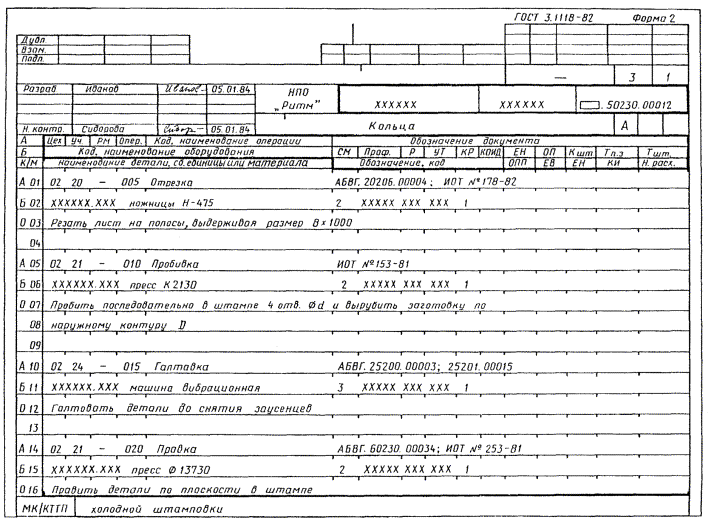 ГОСТ 3.1118-82 Форма 2
Дубл.
Взам.
Подл.
— 3 1
Разраб Иванов Иванов 05.01.84 НПО „Ритм" XXXXXX XXXXXX .50230.00012
Н. контр. Сидорова 05.01.84 Кольца А
А Цех Уч. РМ Опер. Код, наименование операции Обозначение документа
Б Код, наименование оборудования СМ Проф. Р УТ КР КОИД ЕН ОП Кшт Тп.з Тшт.
К/М Наименование детали, сб.единицы или материала Обозначение, код ОПП ЕВ ЕН КИ Н. расх.
А 01 02 20 – 005 Отрезка АБВГ. 20206. 00004; ИОТ №178-82
Б 02 XXXXXX.XXX ножницы Н-475 2 XXXXX XXX XXX 1
О 03 Резать лист на полосы, выдерживая размер В×1000
04
А 05 02 21 – 010 Пробивка ИОТ №153-81
Б 06 XXXXXX.XXX пресс К2130 2 XXXXX XXX XXX 1
О 07 Пробить последовательно в штампе 4 отв. Ød и вырубить заготовку по
08 наружному контуру D
09
А 10 02 24 – 015 Галтовка АБВГ. 25200. 00003; 25201. 00015
Б 11 XXXXXX.XXX машина вибрационная 3 XXXXX XXX XXX 1
О 12 Галтовать детали до снятия заусенцев
13
А 14 02 21 – 020 Правка АБВГ. 60230. 00034; ИОТ № 253-81
Б 15 XXXXXX.XXX пресс Ф 13730 2 XXXXX XXX XXX 1
О 16 Править детали по плоскости в штампе
МК/КТТП холодной штамповки